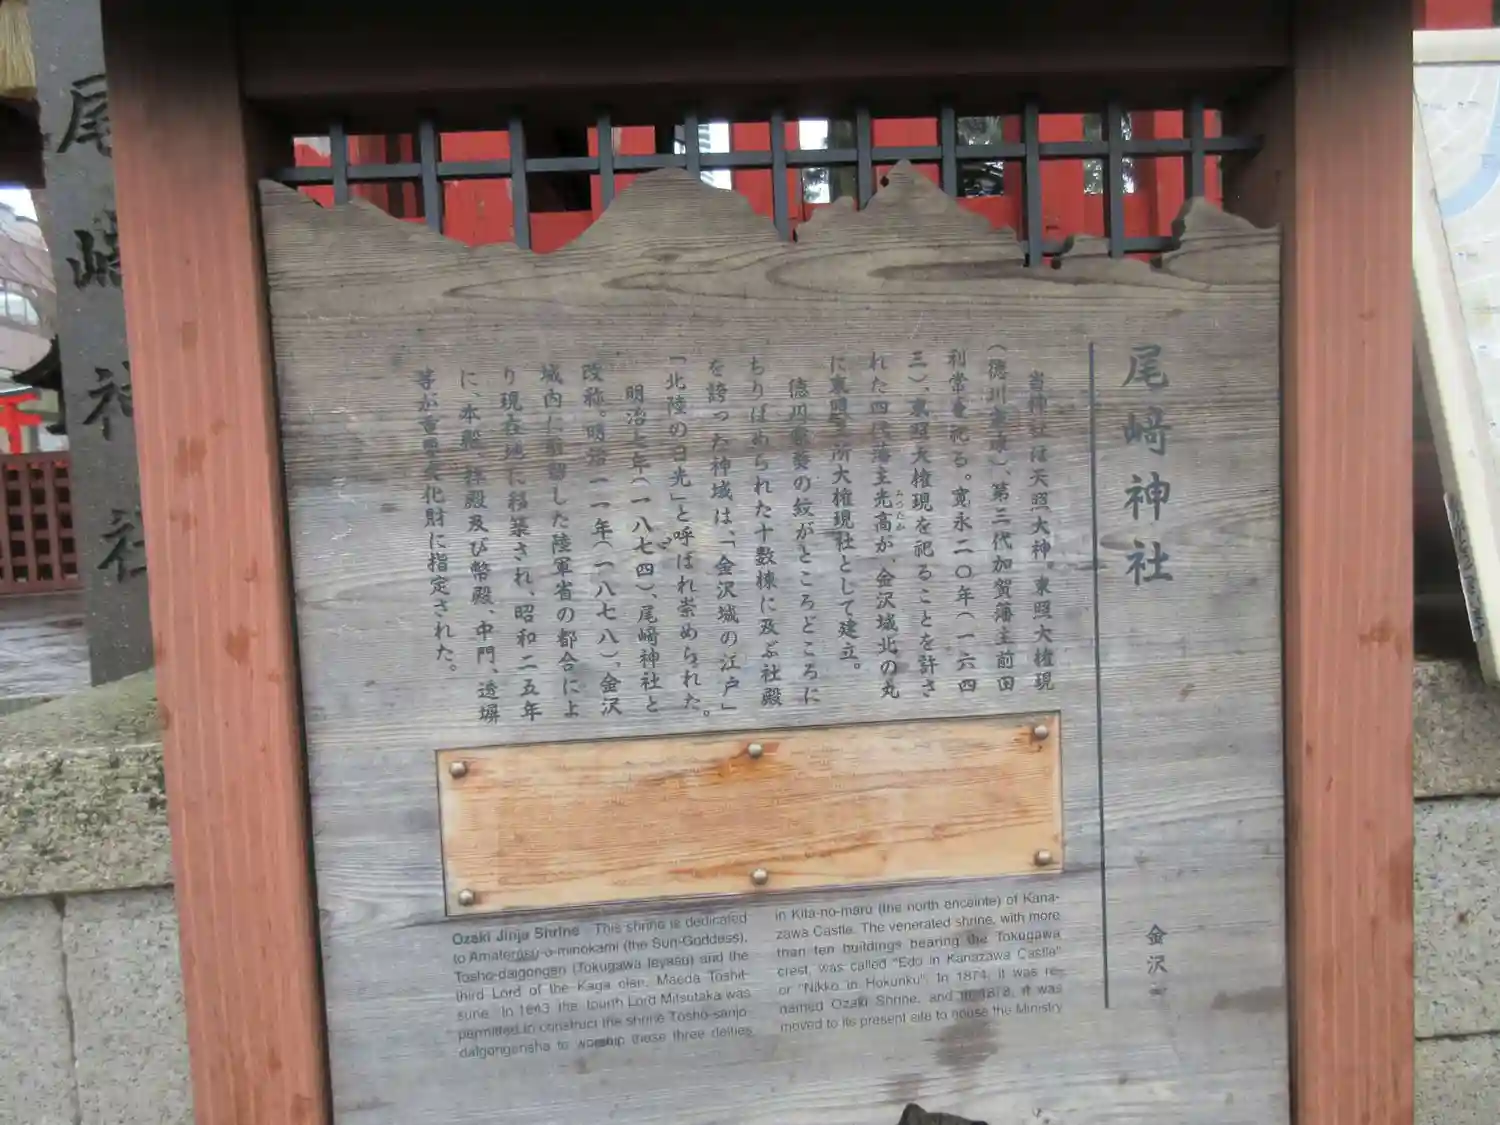 尾崎神社
尾﨑神社
当神社は天照大神。東照大権現
(徳川家康)、第三代加賀藩主前田
利常を祀る。寛永二〇年(一六四
三)、東照大権現を祀ることを許さ
れた四代藩主光高が、金沢城北の丸
みつたか
に東照三所大権現社として建立。
徳川家葵の紋がところどころに
ちりばめられた十数棟に及ぶ社殿
を誇った神域は、「金沢城の江戸」
「北陸の日光」と呼ばれ崇められた。
明治七年(一八七四)、尾﨑神社と
改称。明治一一年(一八七八)、金沢
城内に駐留した陸軍省の都合によ
り現在地に移築され、昭和二五年
に、本殿、拝殿及び幣殿、中門、透塀
等が重要文化財に指定された。
金沢
Ozaki Jinja Shrine This shrine is dedicated
to Amaterasu-o-minokami (the Sun-Goddess),
Tosho-daigongen (Tokugawa Ieyasu) and the
third Lord of the Kaga clan, Maeda Toshit-
sune. In 1643 the fourth Lord Mitsutaka was
permitted to construct the shrine Tosho-sanjo-
daigongensha to worship these three deities
in Kita-no-maru (the north enceinte) of Kana-
zawa Castle. The venerated shrine, with more
than ten buildings bearing the Tokugawa
crest, was called "Edo in Kanazawa Castle"
or "Nikko in Hokuriku". In 1874, it was re-
named Ozaki Shrine, and in 1878, it was
moved to its present site to house the Ministry